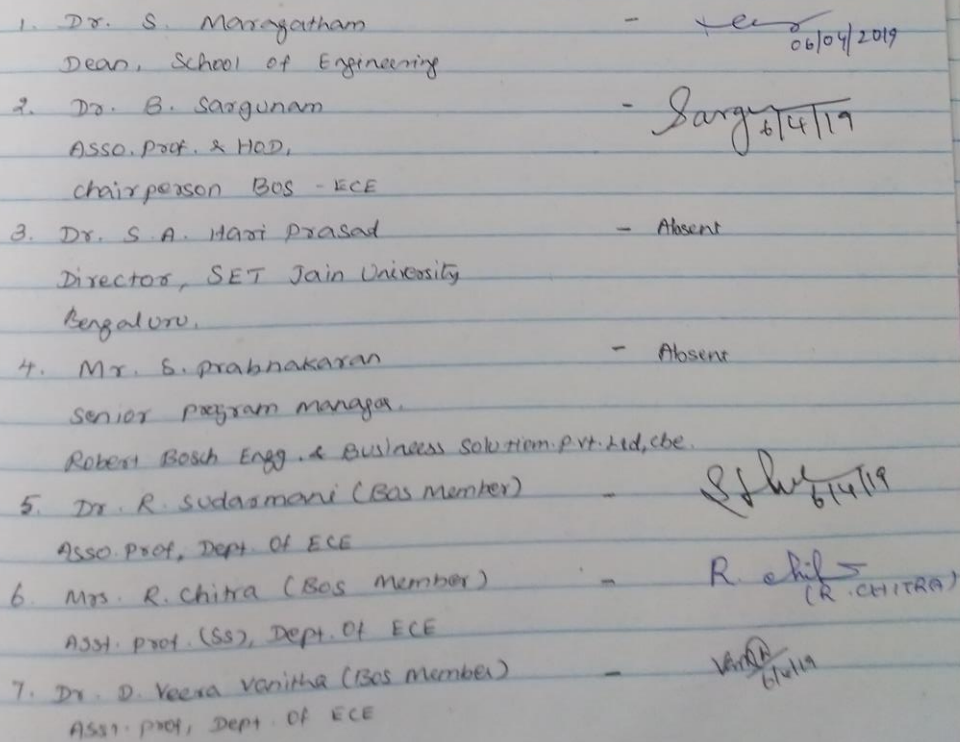 1. Dr. S. Maragatham -
06/04/2019
Dean, School of Engineering
2. Dr. B. Sargunam - Sargu 6/4/19
Asso. Prof. & HOD,
Chairperson BOS - ECE
3. Dr. S. A. Hari Prasad - Absent
Director, SET Jain University
Bengaluru.
4. Mr. S. Prabhakaran - Absent
Senior Program Manager.
Robert Bosch Engg. & Business Solution. Pvt. Ltd, cbe.
5. Dr. R. Sudarmani (Bos Member) - 6/4/19
Asso. Prof, Dept. Of ECE
6. Mrs. R. Chitra (Bos Member) - R.
(R. CHITRA)
Asst. Prof. (SS), Dept. Of ECE
7. Dr. D. Veera Vanitha (Bos Member) - 6/4/19
Asst. Prof, Dept Of ECE